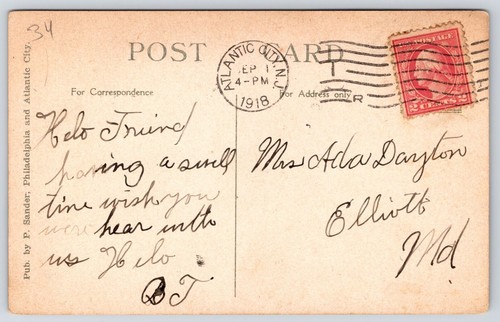 34
POST CARD
ATLANTIC CITY, N.J.
SEP 1
4-PM
1918
POSTAGE
2 CENTS 2
For Correspondence
For Address only
Pub. by P. Sander, Philadelphia and Atlantic City.
Helo Friend
having a swell
time wish you
were hear with
us Helo
BT
Mrs Ada Dayton
Elliott
Md